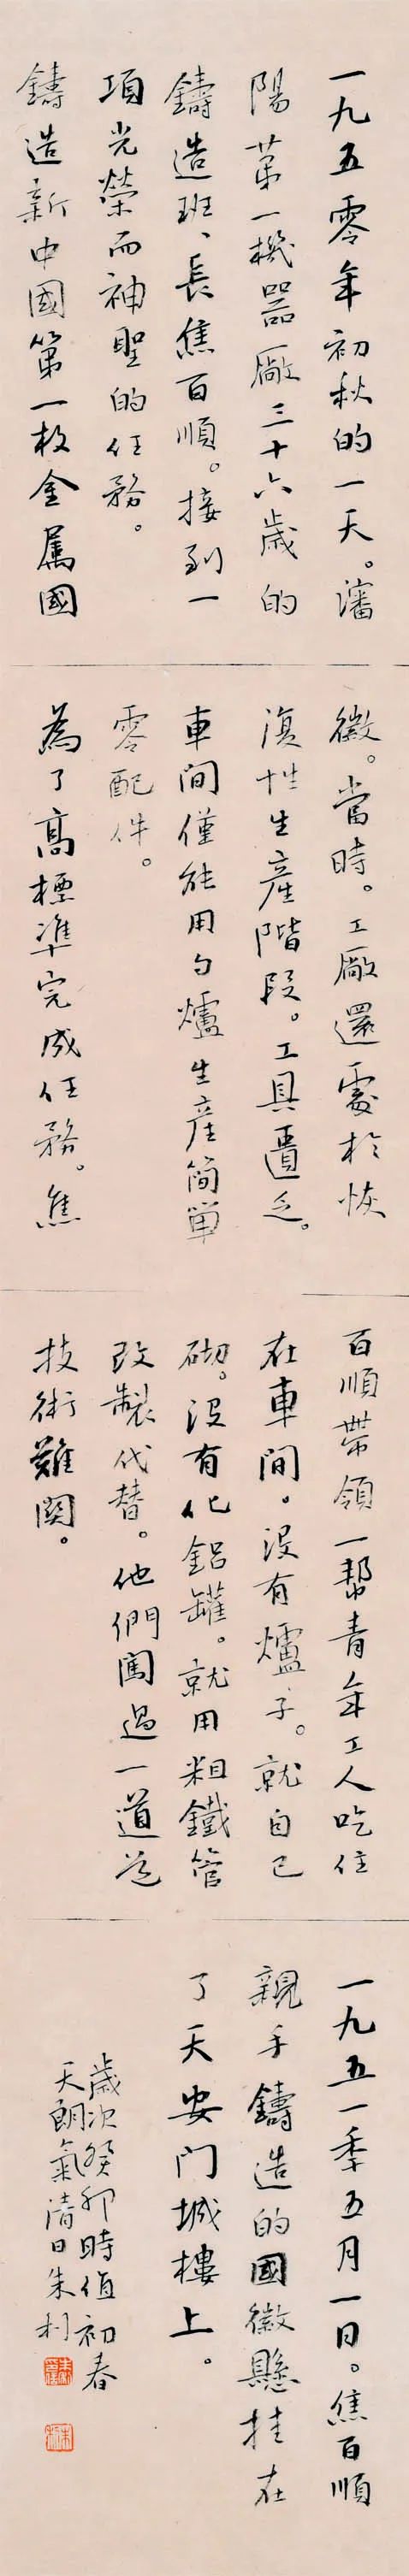 一九五零年初秋的一天。瀋
陽第一機器廠三十六歲的
鑄造班、長焦百順。接到一
項光榮而神聖的任務。
鑄造新中國第一枚金属國
徽。當時。工廠還處於恢
復性生產階段。工具匱乏。
車間僅能用勺爐生產簡單
零配件。
為了高標準完成任務。焦
百順帶領一幫青年工人吃住
在車間。沒有爐子。就自己
砌。沒有化鋁罐。就用粗鐵管
改製代替。他們闖過一道道
技術難關。
一九五一季五月一日。焦百順
親手鑄造的國徽懸挂在
了天安门城樓上。
歲次癸卯時值初春
天朗氣清日朱利